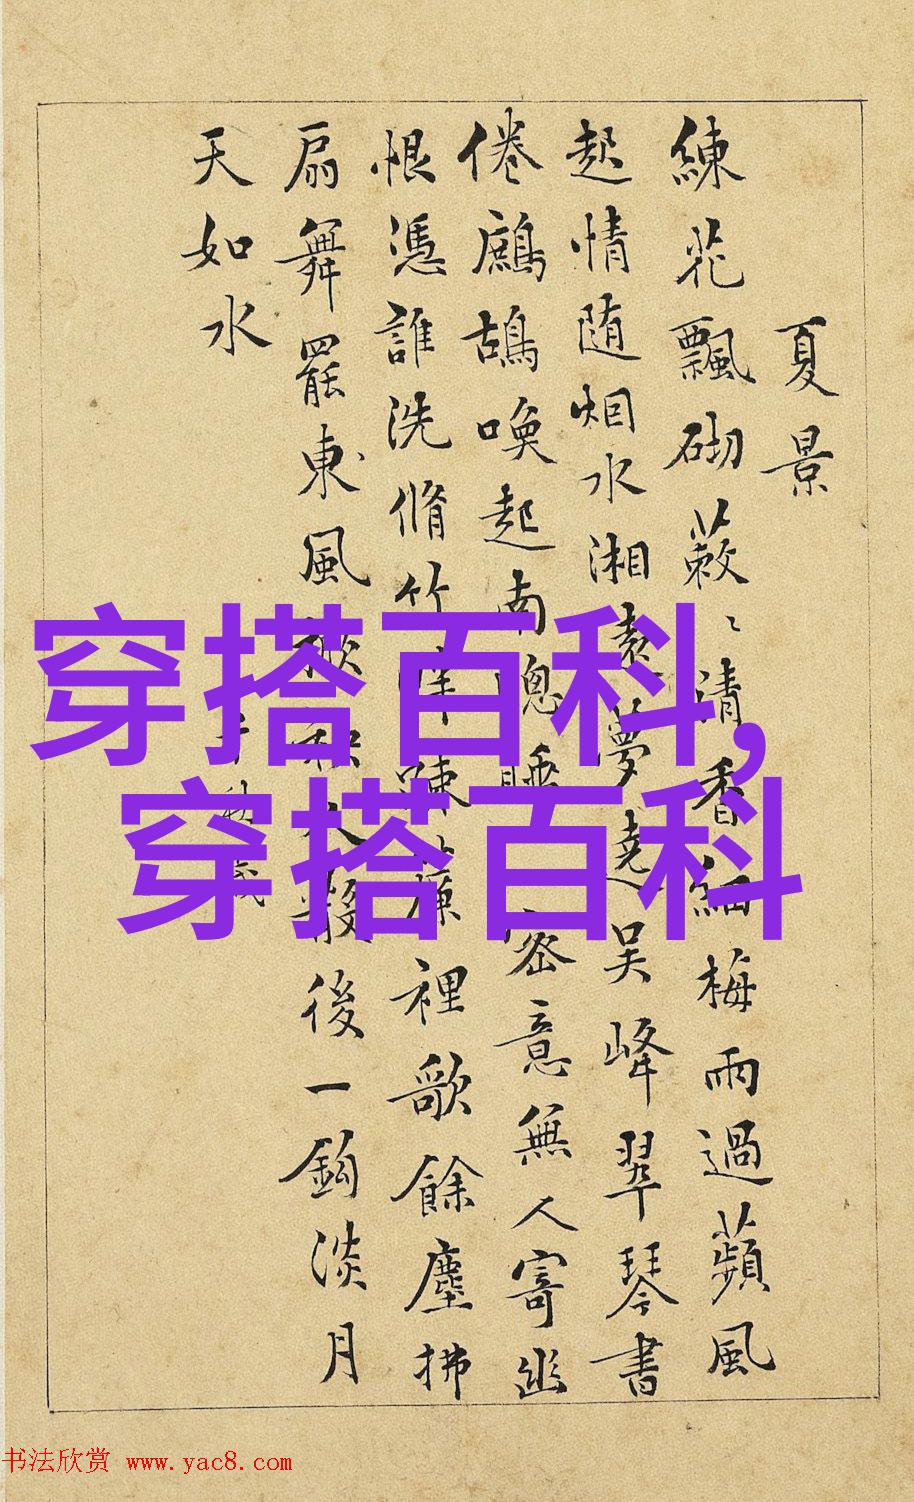 夏景
練花飄砌蔌〻清香細梅雨過蘋風
起情随烟水湘裏夢遶吴峰翠琴書
倦鷓鴣喚起南窻睡密意無人寄幽
恨憑誰洗脩竹畔踈簾裡歌餘塵拂
扇舞罷東風掀秋人散後一鈎淡月
天如水
穿搭百科,
穿搭百科
书法欣赏 www.yac8.com